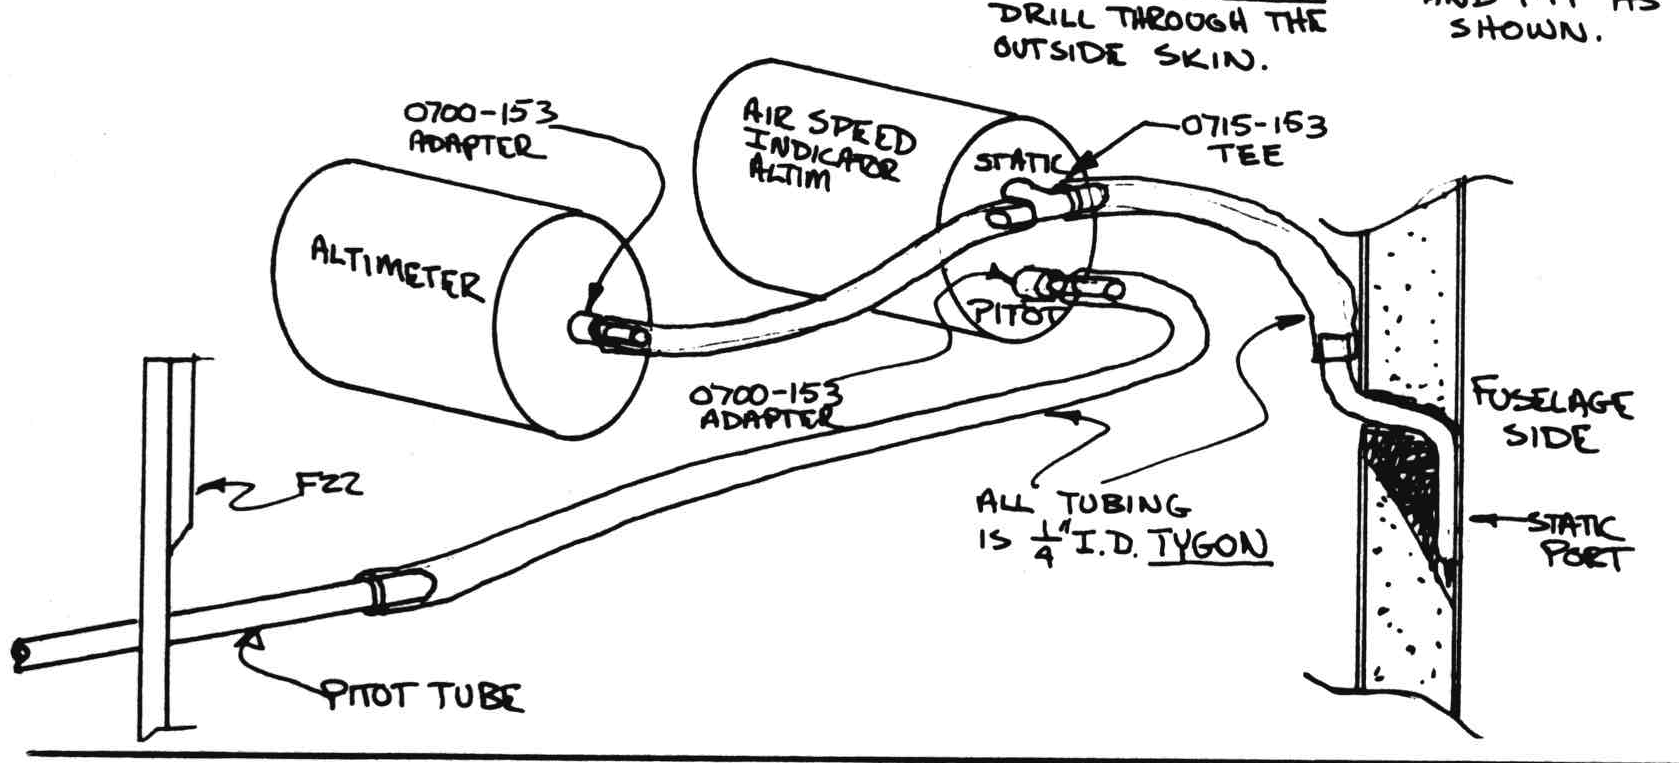 DRILL THROUGH THE
OUTSIDE SKIN.
AS
SHOWN.
0700-153
ADAPTER
AIR SPEED
INDICATOR
ALTIM
STATIC
0715-153
TEE
ALTIMETER
PITOT
0700-153
ADAPTER
FUSELAGE
SIDE
F22
ALL TUBING
IS 1/4" I.D. TYGON
STATIC
PORT
PITOT TUBE